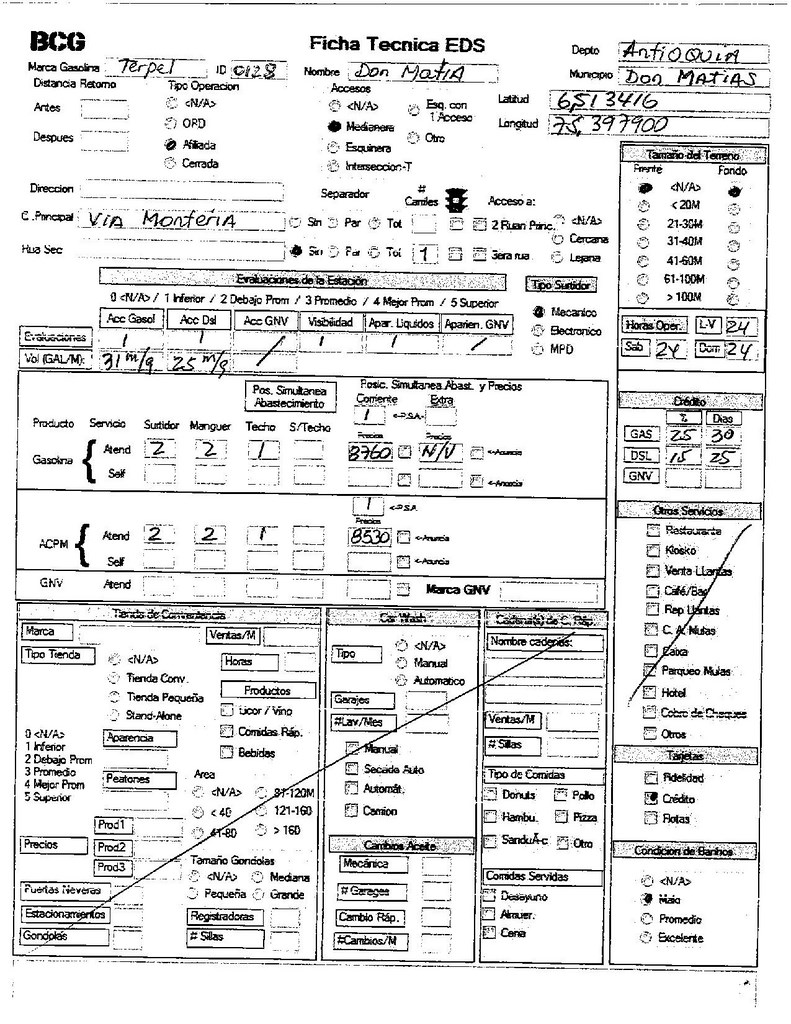 BCG
Ficha Tecnica EDS
Depto ANTIOQUIA
Marca Gasolina Terpel ID 0128
Nombre Don MatiA
Municipio Don MATIAS
Distancia Retorno
Tipo Operacion
Accesos
Antes
<N/A>
<N/A>
Esq. con 1 Acceso
Latitud 6,513416
ORD
Medianera
Otro
Longitud 75,397900
Despues
Afiliada
Esquinera
Cerrada
Interseccion-T
Tamaño del Terreno
Frente Fondo
<N/A>
< 20M
21-30M
31-40M
41-60M
61-100M
> 100M
Direccion
Separador
# Carriles
Acceso a:
C .Principal VIA MonteriA
Sin Par Tot
2 Ruan Princ.
<N/A>
Cercana
Rua Sec
Sin Par Tot 1
Sera rua
Lejana
Evaluaciones de la Estación
Tipo Surtidor
0 <N/A> / 1 Inferior / 2 Debajo Prom / 3 Promedio / 4 Mejor Prom / 5 Superior
Mecanico
Electronico
MPD
Acc Gasol Acc Dsl Acc GNV Visibilidad Apar. Liquidos Aparien. GNV
Evaluaciones 1 1 / 1 1 /
Vol (GAL/M): 31 m/g 25 m/g
Horas Oper. L-V 24
Sab 24 Dom 24
Pos. Simultanea Abastecimiento
Posic. Simultanea Abast. y Precios
Corriente Extra
1 <-P.S.A.-
Producto Servicio Surtidor Manguer Techo S/Techo
Precios Precios
Gasolina Atend 2 2 1 8760 N/V <-Anuncia
Self <-Anuncia
1 <-P.S.A.
Precios
ACPM Atend 2 2 1 8530 <-Anuncia
Self <-Anuncia
GNV Atend Marca GNV
Crédito
% Dias
GAS 25 30
DSL 15 25
GNV
Otros Servicios
Restaurante
Kiosko
Venta Llantas
Café/Bar
Rep Llantas
C. A. Mulas
Caixa
Parqueo Mulas
Hotel
Cobro de Cheques
Otros
Tarjetas
Fidelidad
Crédito
Flotas
Condicion de Banhos
<N/A>
Malo
Promedio
Excelente
Tienda de Conveniencia
Marca Ventas/M
Tipo Tienda
<N/A>
Horas
Tienda Conv.
Tienda Pequeña
Stand-Alone
Productos
Licor / Vino
Comidas Ráp.
Bebidas
0 <N/A>
1 Inferior
2 Debajo Prom
3 Promedio
4 Mejor Prom
5 Superior
Aparencia
Peatones
Area
<N/A> 81-120M
< 40 121-160
41-80 > 160
Precios
Prod1
Prod2
Prod3
Tamaño Gondolas
<N/A> Mediana
Pequeña Grande
Puertas Neveras
Estacionamientos
Gondolas
Registradoras
# Sillas
Car Wash
Tipo
<N/A>
Manual
Automatico
Garajes
#Lav/Mes
Manual
Secado Auto
Automát.
Camion
Cambios Aceite
Mecánica
# Garages
Cambio Ráp.
#Cambios/M
Cadena(s) de C. Ráp.
Nombre cadenas:
Ventas/M
# Sillas
Tipo de Comidas
Donuts Pollo
Hambu. Pizza
SanduÃ-c Otro
Comidas Servidas
Desayuno
Almuer.
Cena